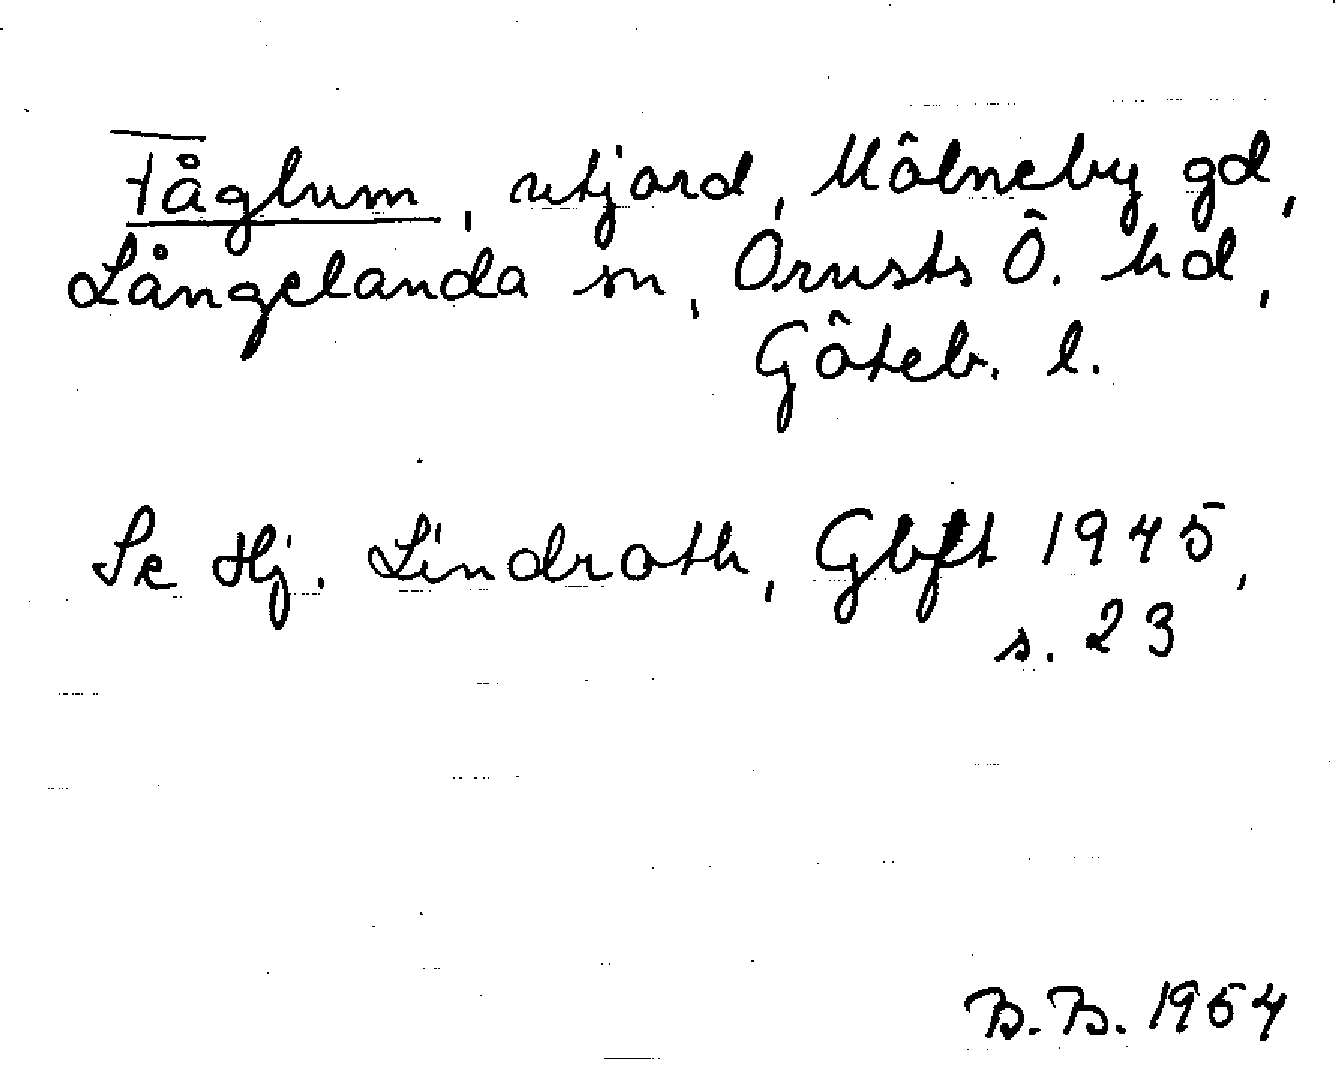 Fåglum, utjord, Mölneby gd,
Långelanda sn, Orusts Ö. hd,
Göteb. l.
Se Hj. Lindroth, Gbft 1945,
s. 23
B.B. 1964